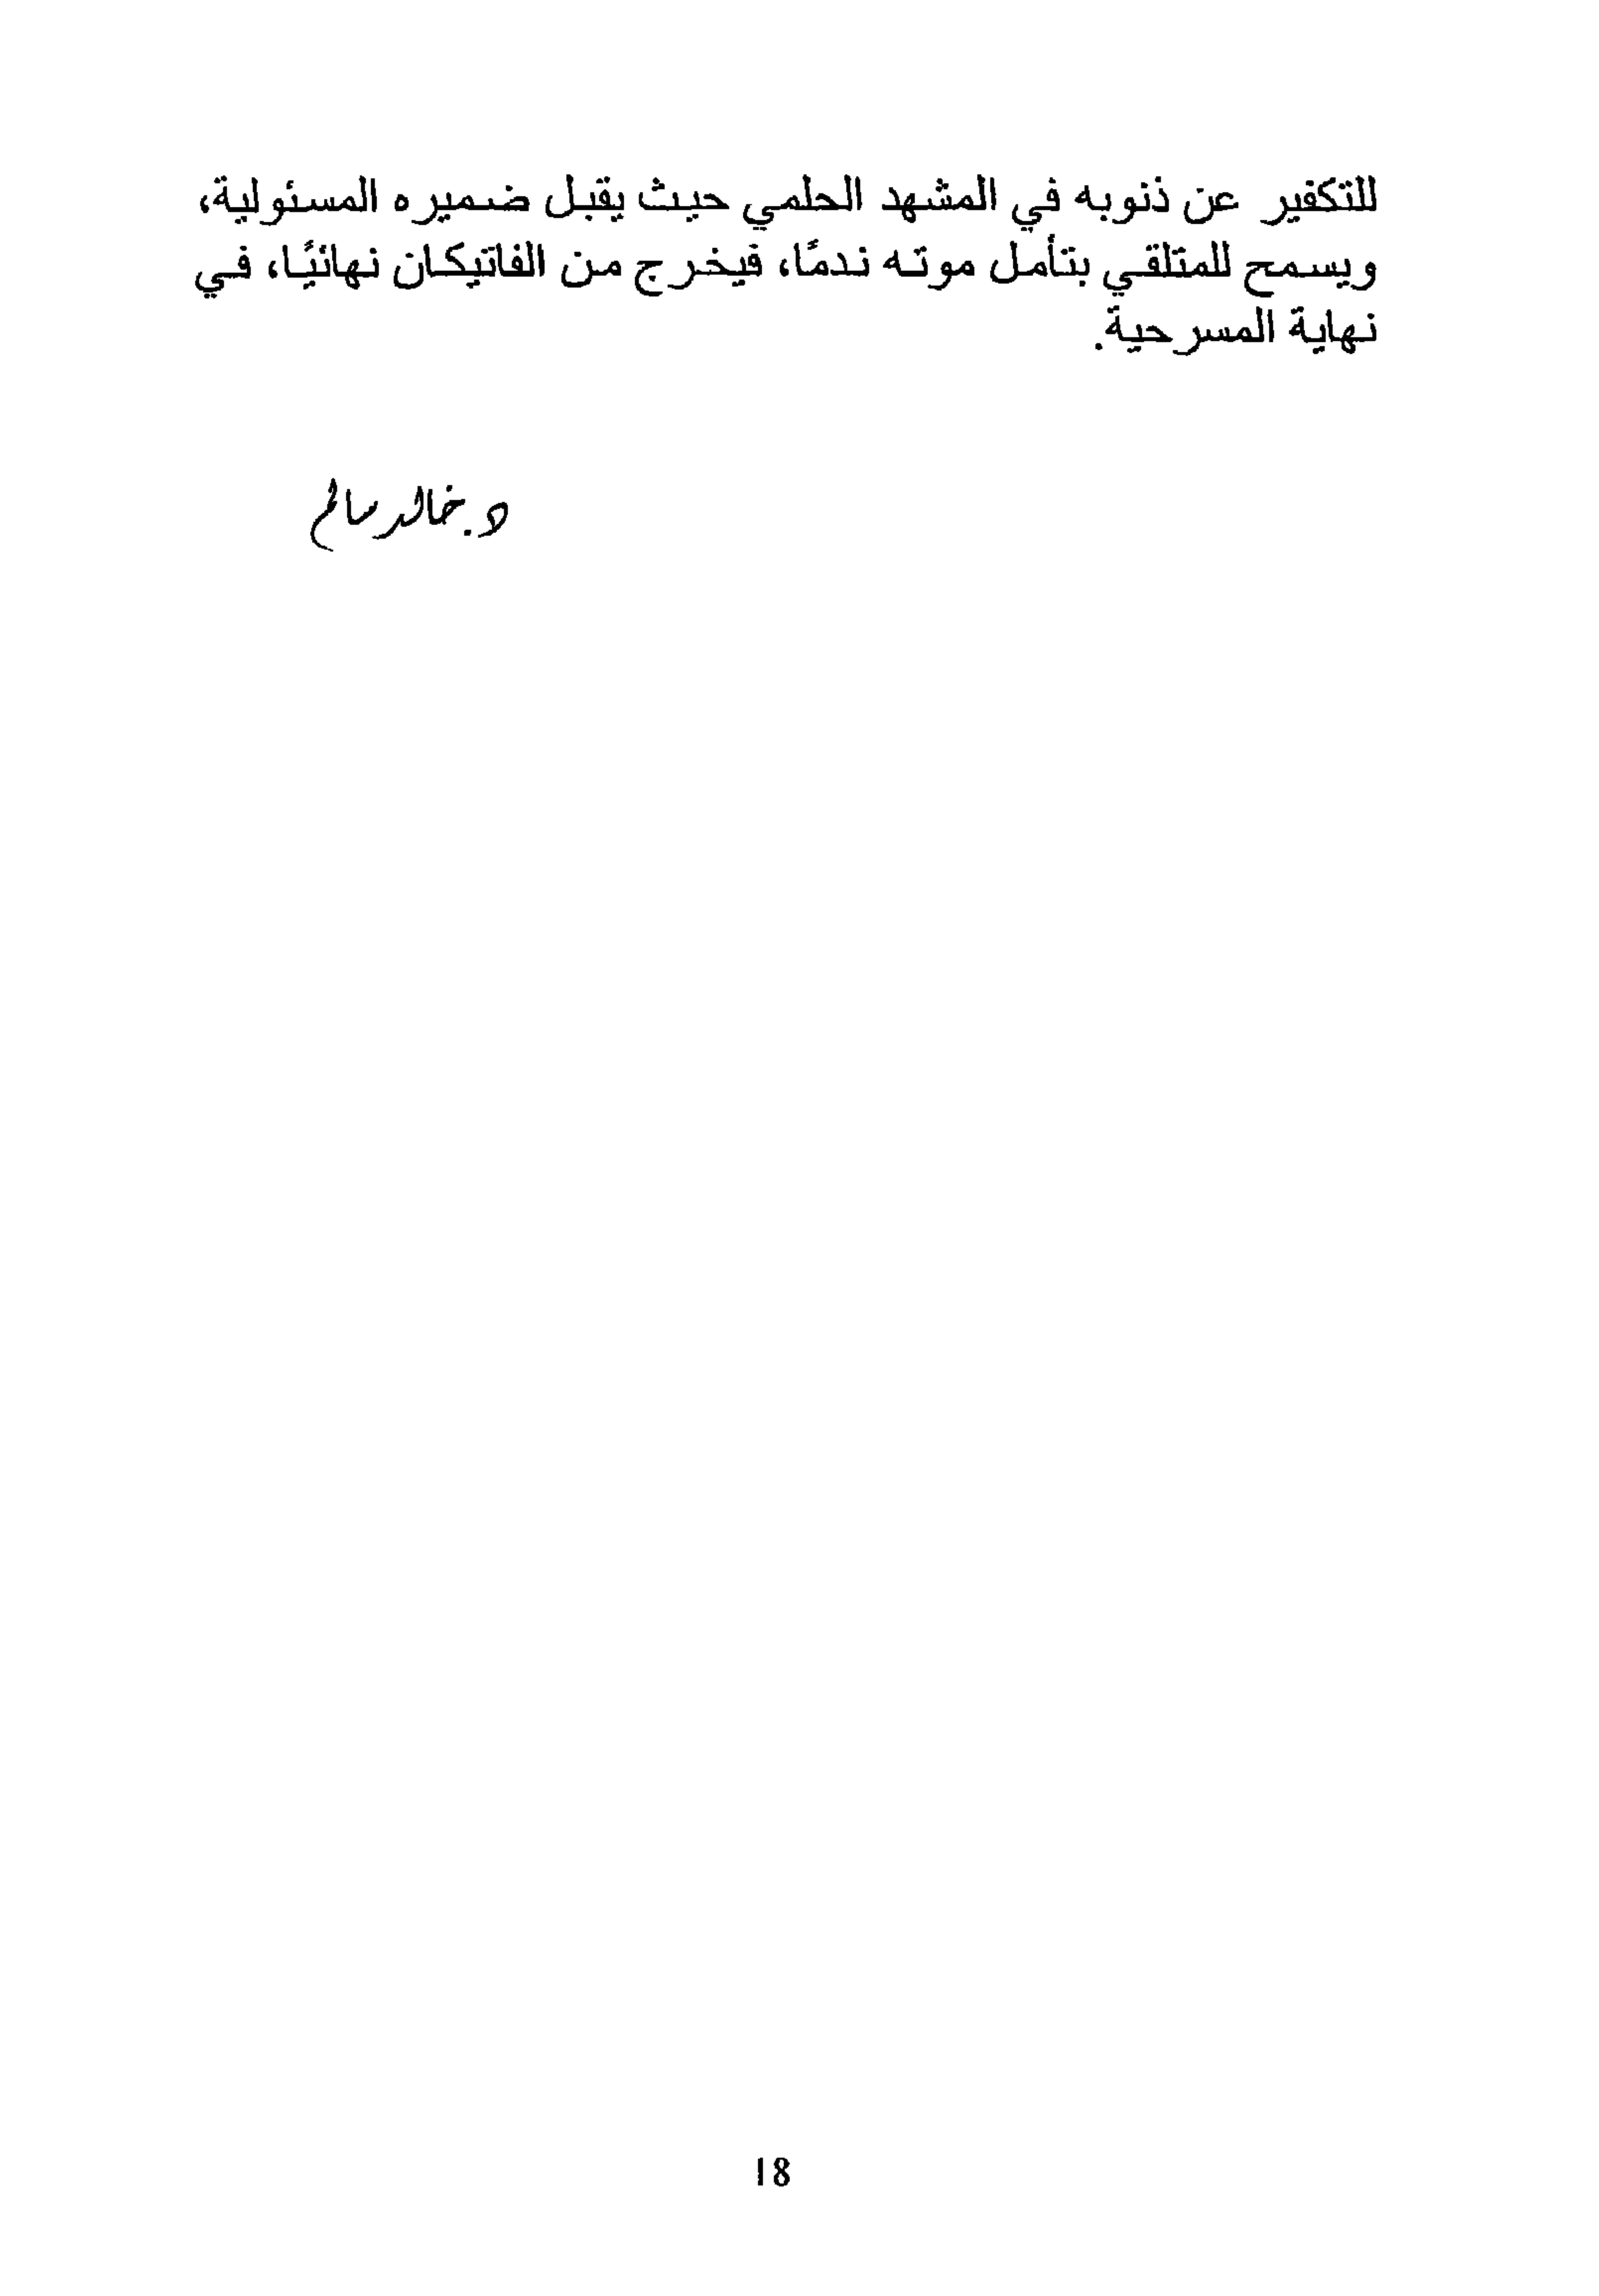 للتكفير عن ذنوبه في المشهد الحلمي حيث يقبل ضميره المسئولية،
ويسمح للمتلقي بتأمل موته ندمًا، فيخرج من الفاتيكان نهائيًا، في
نهاية المسرحية.
د. خالد سالم
18